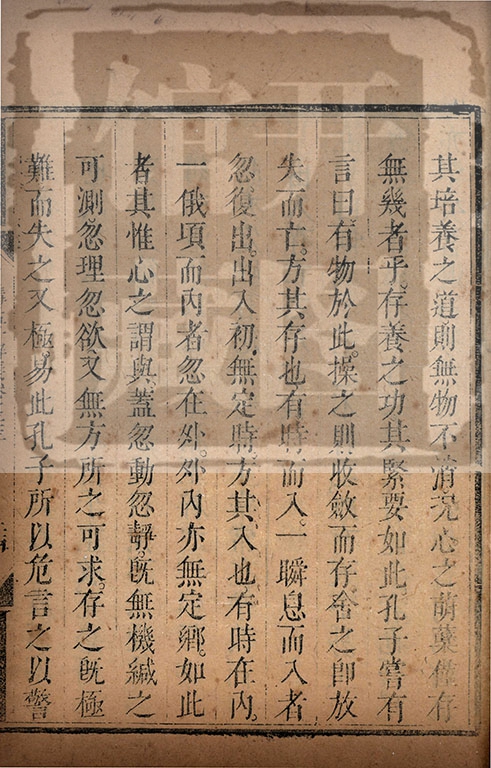 其培養之道則無物不消況心之萌蘖僅存
無幾者乎。存養之功其緊要如此孔子嘗有
言曰有物於此。操之則收斂而存舍之卽放
失而亡。方其存也有時而入。一瞬息而入者
忽復出。出入初無定時。方其入也有時在內。
一俄頃而內者忽在外。外內亦無定鄉。如此
者其惟心之謂與。蓋忽動忽靜。旣無機緘之
可測忽理忽欲又無方所之可求。存之旣極
難而失之又極易此孔子所以危言之以警